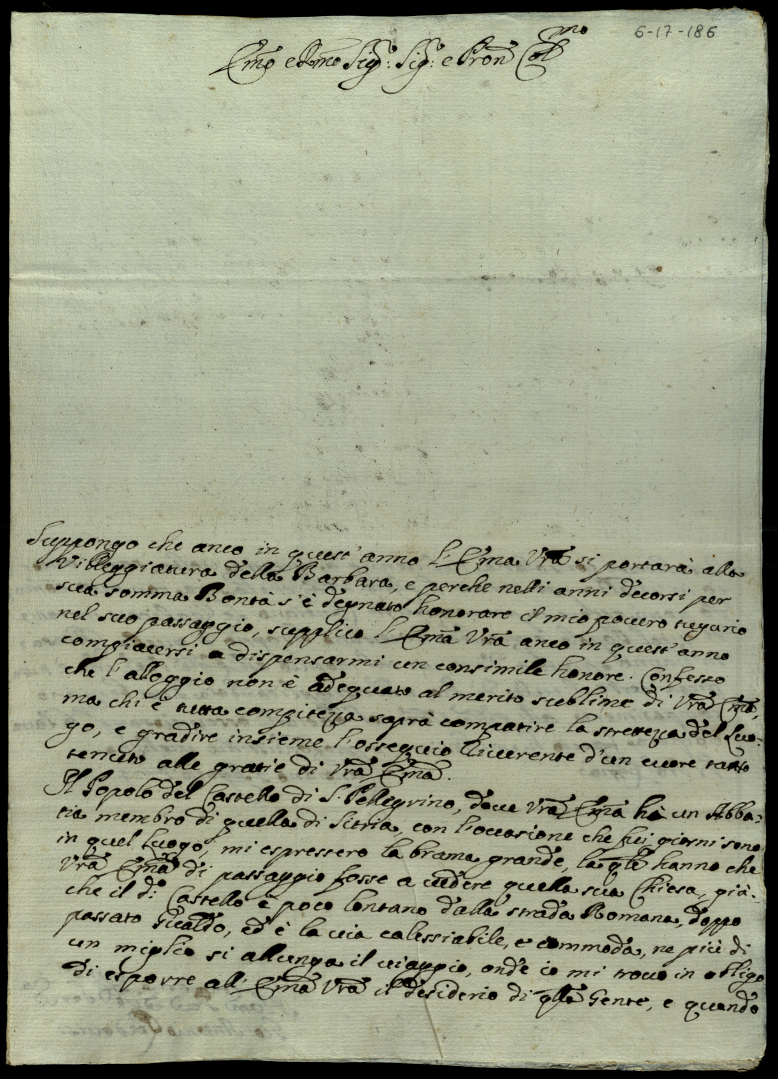 6-17-186
Emo e Rmo Sig.r Sig.r e Pron Colmo
Suppongo che anco in quest'anno l'Ema Vra si portarà alla
Villeggiatura della Barbara, e perche nelli anni decorsi per
sua somma Bontà s'è degnato honorare il mio povero tugurio
nel suo passaggio, supplico l'Ema Vra anco in quest'anno
compiacersi a dispensarmi un consimile honore. Confesso
che l'alloggio non è adequato al merito sublime di Vra Ema,
ma chi è tutta compitezza saprà compatire la strettezza del Luo-
go, e gradire insieme l'ossequio riverente d'un cuore tanto
tenuto alle gratie di Vra Ema.
Il Popolo del Castello di S. Pellegrino, dove Vra Ema hà un Abba-
tia membro di quella di Sitria, con l'occasione che fui giorni sono
in quel Luogo, mi espressero la brama grande, la qle hanno che
Vra Ema di passaggio fosse a vedere quella sua Chiesa, già-
che il d.o Castello è poco lontano dalla strada Romana, doppo
passato Gualdo, ed è la via calessiabile, e commoda, ne più di
un miglio si allunga il viaggio, onde io mi trovo in obligo
di esporre all'Ema Vra il desiderio di qlla Gente, e quando